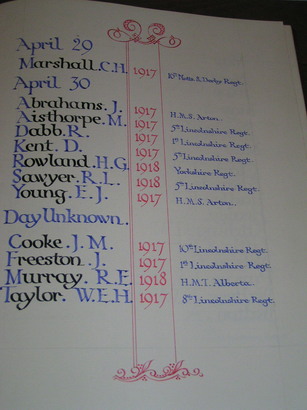 April 29
Marshall. C.H. 1917 10th Notts & Derbys Regt.
April 30
Abrahams. J. 1917 H.M.S. Arton.
Aisthorpe. M. 1917 5th Lincolnshire Regt.
Dabb. R. 1917 1st Lincolnshire Regt.
Kent. D. 1917 5th Lincolnshire Regt.
Rowland. H.G. 1918 Yorkshire Regt.
Sawyer. R.L. 1918 5th Lincolnshire Regt.
Young. E.J. 1917 H.M.S. Arton.
Day Unknown.
Cooke. J.M. 1917 10th Lincolnshire Regt.
Freeston. J. 1917 1st Lincolnshire Regt.
Murray. R.E. 1918 H.M.T. Alberta.
Taylor. W.E.H. 1917 8th Lincolnshire Regt.